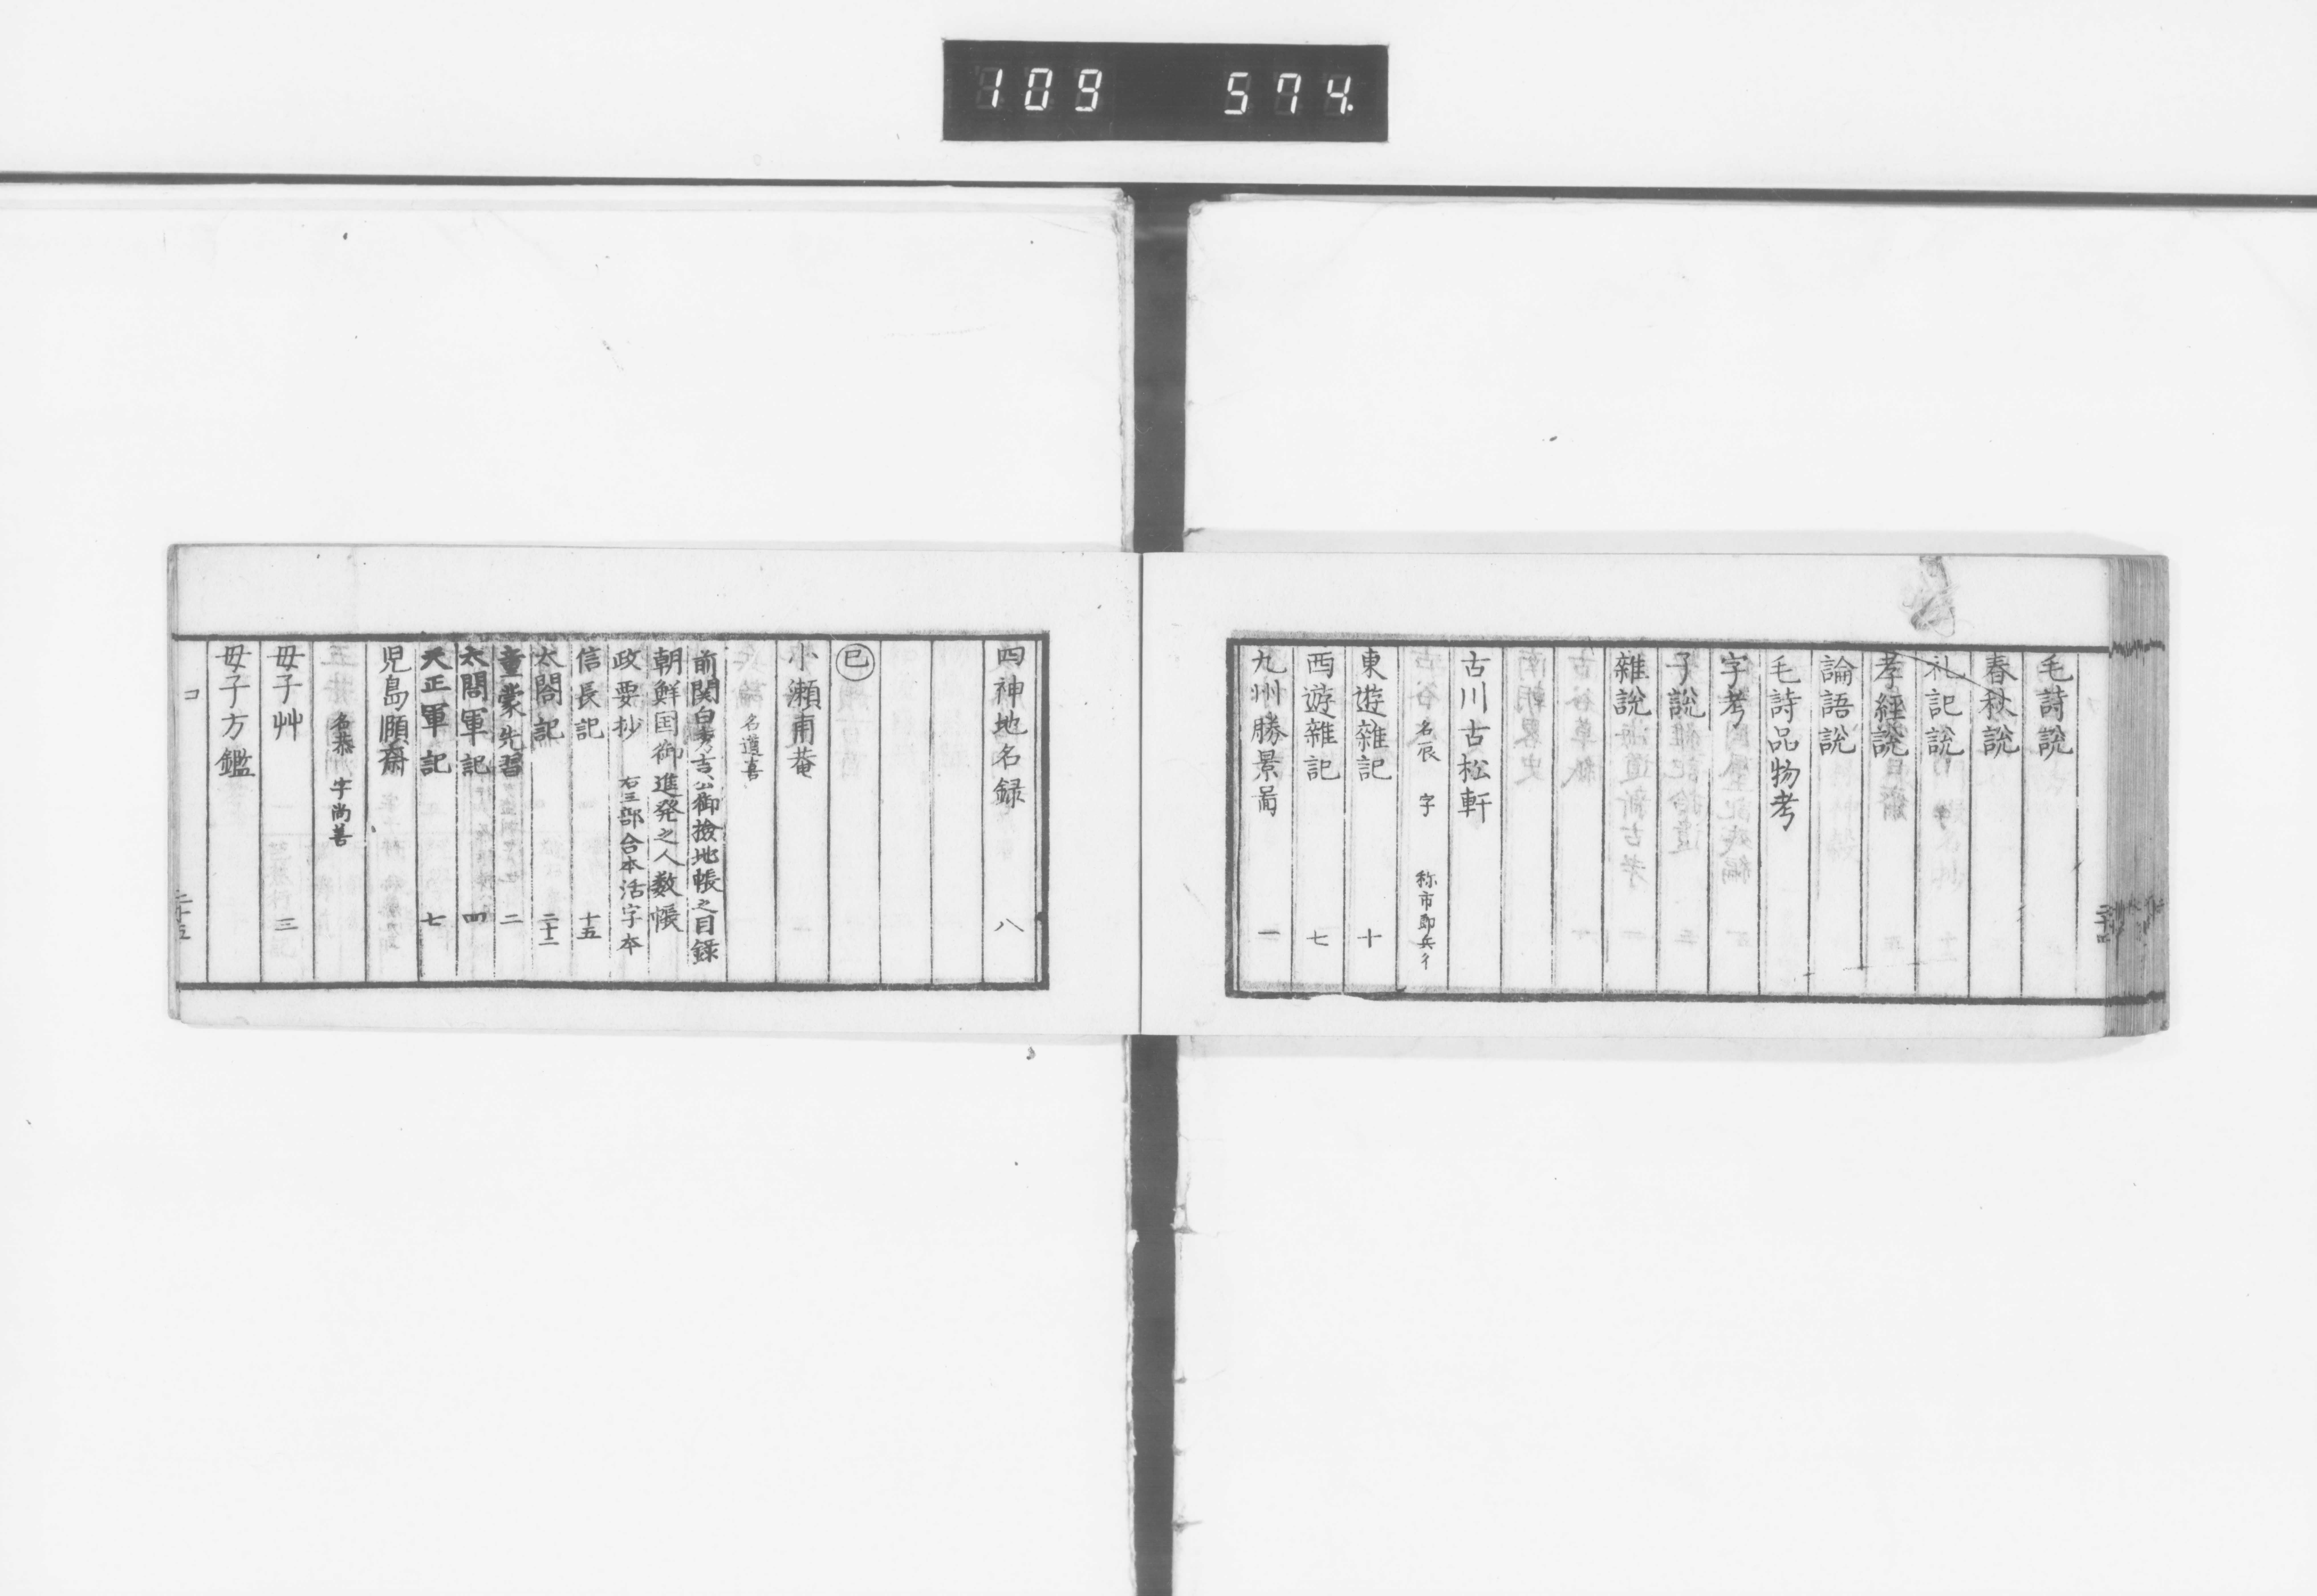 109 574
毛詩説
春秋説
礼記説
孝經説
論語説
毛詩品物考
字考
子説
雜説
古川古松軒
名辰 字 称市郎兵ヱ
東遊雜記 十
西遊雜記 七
九州勝景啚 一
四神地名録 八
巳
小瀬甫菴
名道喜
前関白秀吉公御撿地帳之目録
朝鮮国御進発之人数帳
政要抄 右三部合本活字本
信長記 十五
太閤記 二十二
童蒙先習 二
太閤軍記 四
天正軍記 七
児島願齋
名恭 字尚善
母子艸 三
母子方鑑
コ 二十五